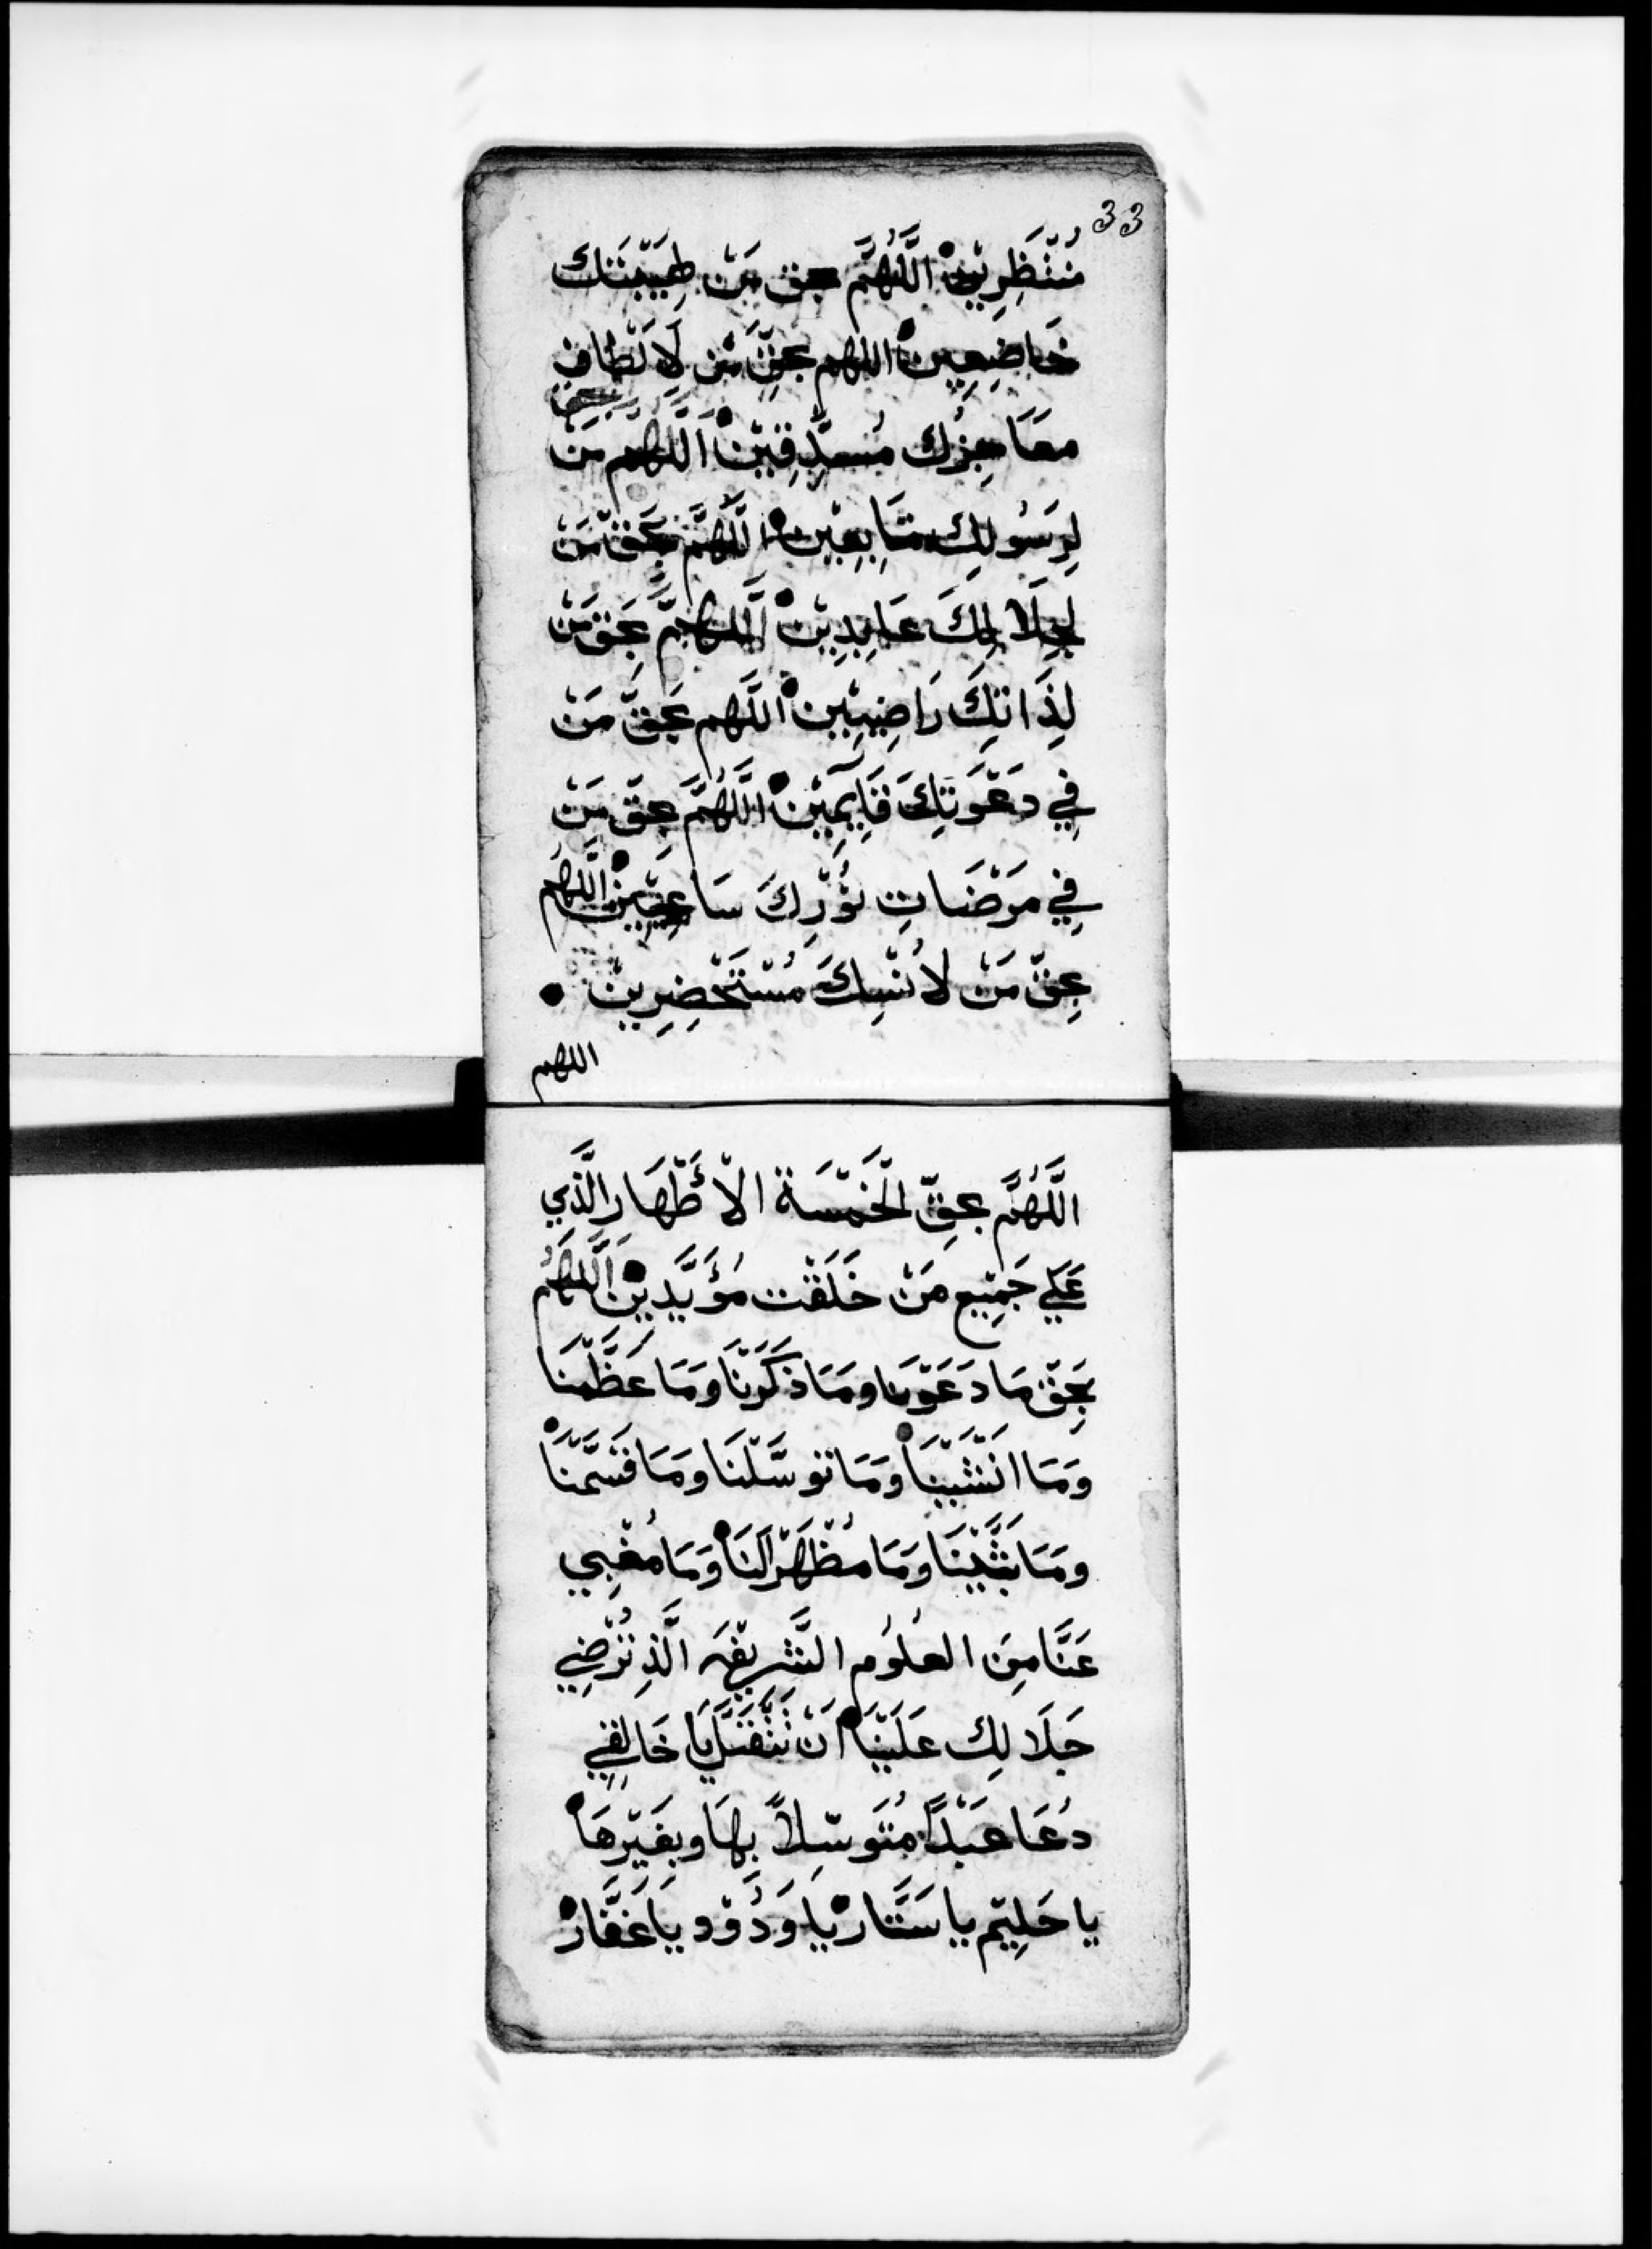 33
مُنْتَظِرِيْنْ اللَّهُمَّ بحق مَنْ طِيَبَتَك
خَاضِعِينْ اللهم بحقِّ مَن لِالْطَافِ
بحق
معَاجِزُك مُسدِّقِيْنْ اَللَّهُمَّ مَن
لِرَسُولِكِ مَتَابِعِيْن اللَّهُمَّ بِحَقّ مَنْ
لِجَلَالِكَ عَابِدِيْنْ اللهمَّ بِحَق مَنْ
لِذَاتِكَ رَاضِيِيْن اللَّهم بحَقِّ مَنْ
فِي دَعْوَتِكَ قَايِمِيْنْ اللَّهُمَّ بحِقّ مَنْ
فِي مَرْضَاتِ نُوْرِكَ سَاعِيِيْنْ اللَّهُم
بحِقّ مَنْ لاُنْسِكَ مُسْتَحْضِرِيْنْ
اللهم
اللَّهُمَّ بحقِّ الْخَمْسَة الاْأَطْهَارِ الَّذِي
عَلَي جَمِيْع مَنْ خَلَقْت مُؤَيَّدِيْنْ اَللَّهُم
بِحَقْ مَا دَعَوْنا ومَا ذَكَرْنَا وَمَا عَظَّمْنَا
وَمَا انْتَشَيْنَا وَمَا توسَّلْنَا وَمَا قَسَمْنَا
ومَا بَثَّيْنَا وَمَا مُظْهَرْ لَنَا وَمَا مُغْبِي
عَنَّا مِنَ العلُوُم الشَّرِيْفَه الَّذِ تُرْضِي
جَلَالِك عَلَيْنَا اَنْ تَتْقَبَّل يَا خَالِقِي
دُعَا عَبْدًا مُتَوسِّلاً بِهَا وبغَيْرهَا
يا حَلِيْم يا سَتَّارْ يا وَدُوْد يَا غَفَّارْ